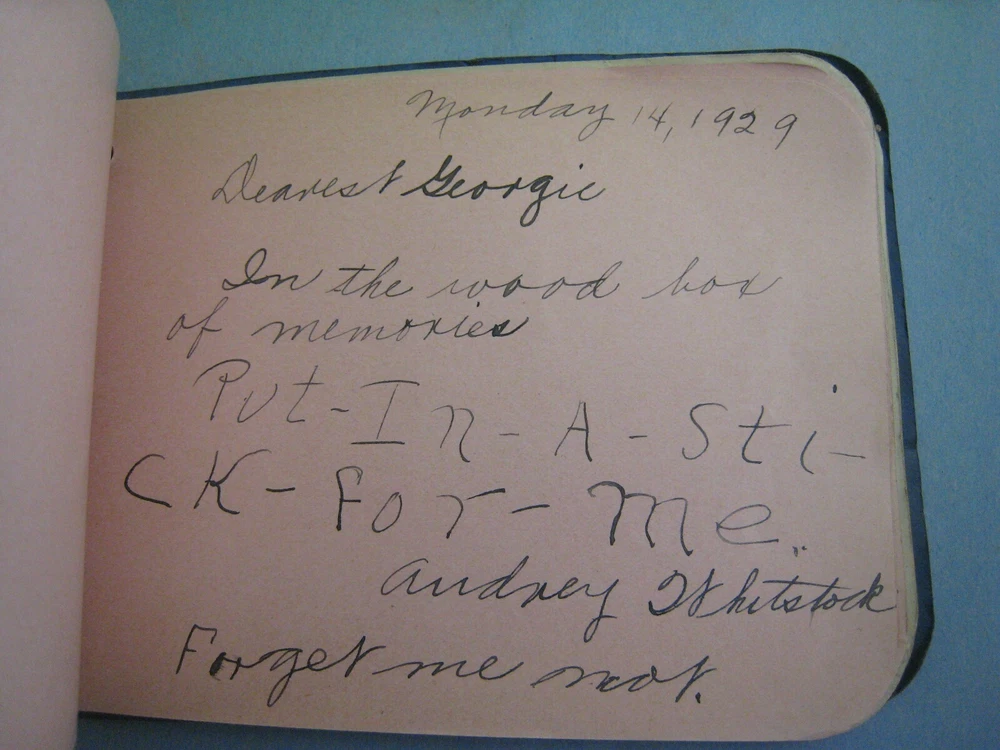 Monday 14, 1929
Dearest Georgie
In the wood box
of memories
Put-In-A-Sti-
CK-For-Me.
Audrey Whitstock
Forget me not.